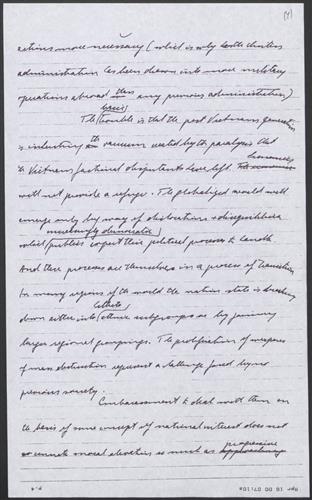 (7)
actions more necessary (which is why both Clinton
administration has been drawn into more military
operations abroad than any previous administration)
The trouble is that the post Vietnam generation
is inheriting the vacuum created by the paralysis that
the Vietnam factional disputants have left. Economics
will not provide a refuge. The globalized world will
emerge only by way of dislocations + disequilibria
which publics expect their political process to
increasingly democratic
And these processes are themselves in a process of transition
In many regions of the world the nation state is breaking
down either into ethnic subgroups or by joining
larger regional groupings. The proliferation of weapons
of mass destruction represent a challenge faced by no
previous society.
Embarrassment to deal with them on
the basis of some concept of national interest does not
so much moral elevation as much as progressive
P.4
Apr 18 00 07:10a